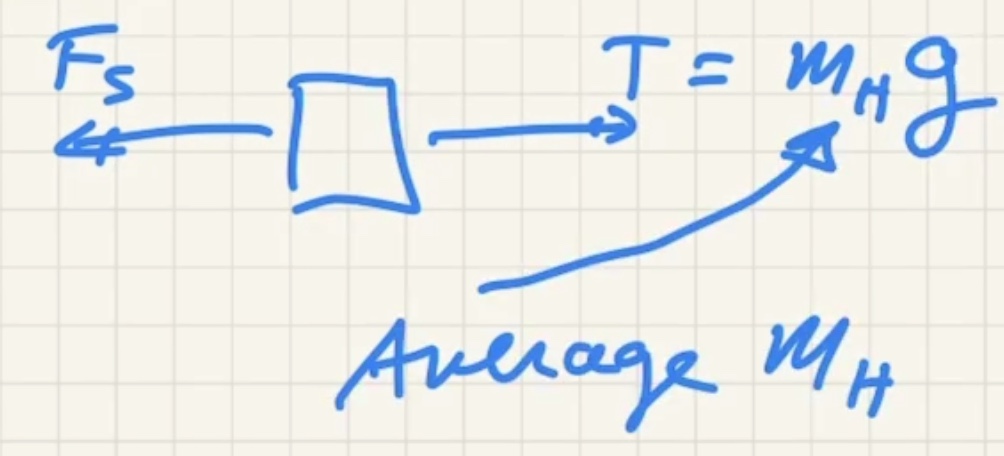 Fs
T = mHg
Average mH